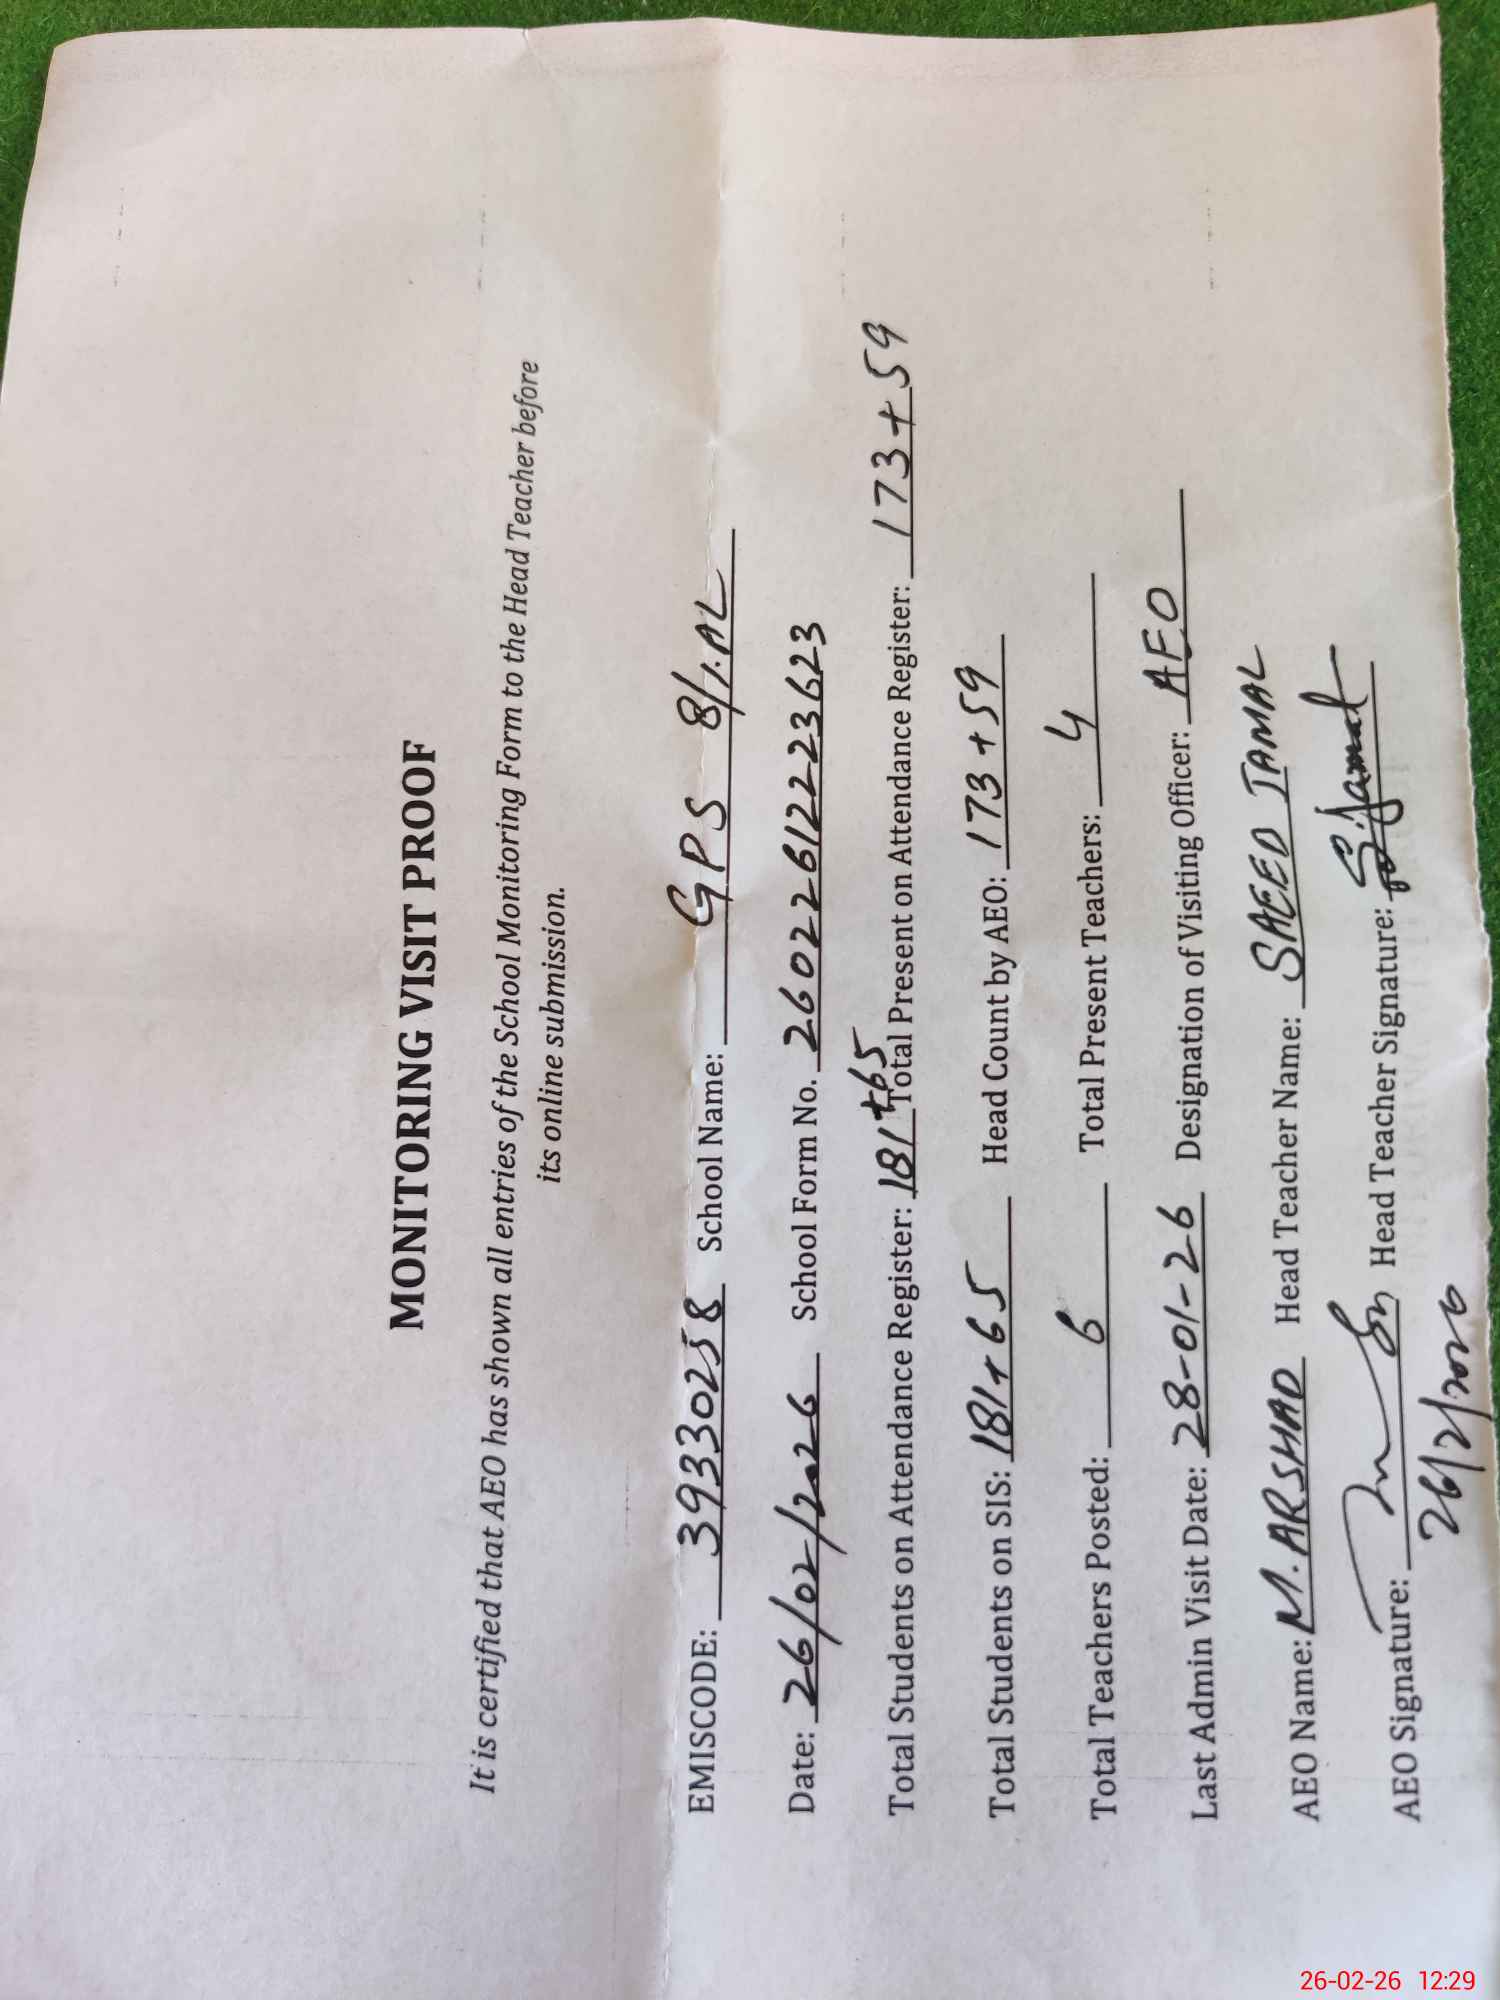 MONITORING VISIT PROOF
It is certified that AEO has shown all entries of the School Monitoring Form to the Head Teacher before
its online submission.
EMISCODE: 39330258 School Name: GPS 8/1.AL
Date: 26/02/2026 School Form No. 260226122223623
Total Students on Attendance Register: 181+65 Total Present on Attendance Register: 173+59
Total Students on SIS: 181+65 Head Count by AEO: 173+59
Total Teachers Posted: 6 Total Present Teachers: 4
Last Admin Visit Date: 28-01-26 Designation of Visiting Officer: AEO
AEO Name: M. ARSHAD Head Teacher Name: SAEED JAMAL
AEO Signature: Head Teacher Signature: S.Jamal
26/2/2026
26-02-26 12:29